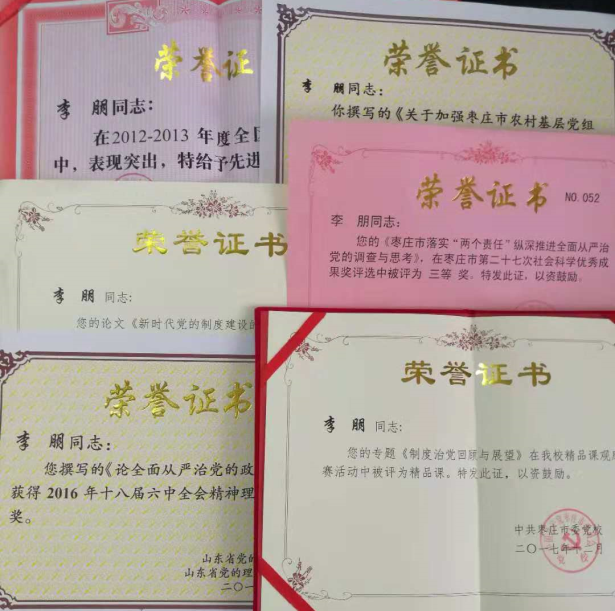 荣誉证
李 朋同志：
在2012-2013 年度全国
中，表现突出，特给予先进
荣誉证书
李 朋同志：
你撰写的《关于加强枣庄市农村基层党组
荣誉证书
NO.052
李 朋同志：
您的《枣庄市落实“两个责任”纵深推进全面从严治
党的调查与思考》，在枣庄市第二十七次社会科学优秀成
果奖评选中被评为 三等 奖。特发此证，以资鼓励。
荣誉证书
李 朋 同志：
您的论文《新时代党的制度建设的
荣誉证书
李 朋同志：
您撰写的《论全面从严治党的政
获得 2016 年十八届六中全会精神理
奖。
山东省党的
山东省党的理
二〇一
荣誉证书
李 朋 同志：
您的专题《制度治党回顾与展望》在我校精品课观
赛活动中被评为精品课。特发此证，以资鼓励。
中共枣庄市委党校
二〇一七年十二月